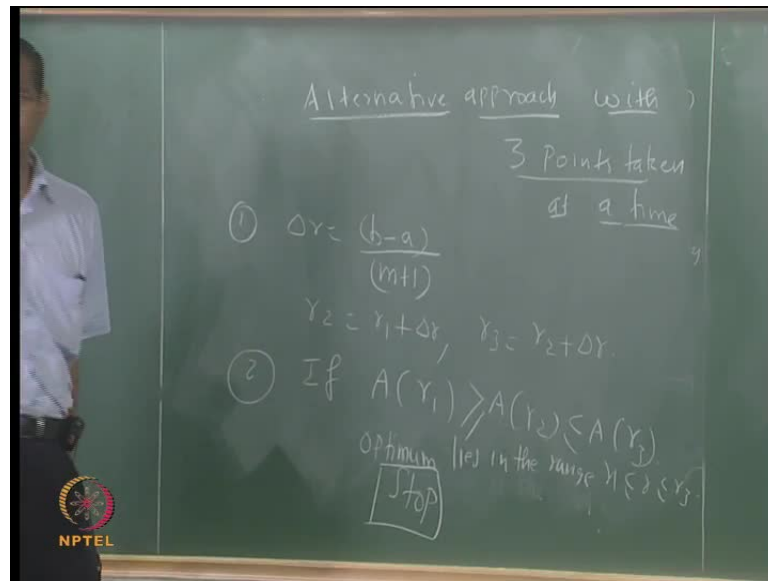 Alternative approach with
3 points taken
at a time
① Δr = (b-a)/(m+1)
r₂ = r₁+Δr, r₃ = r₂+Δr.
② If A(r₁) ≥ A(r₂) ≤ A(r₃)
optimum lies in the range r₁ ≤ r ≤ r₃.
Stop
NPTEL